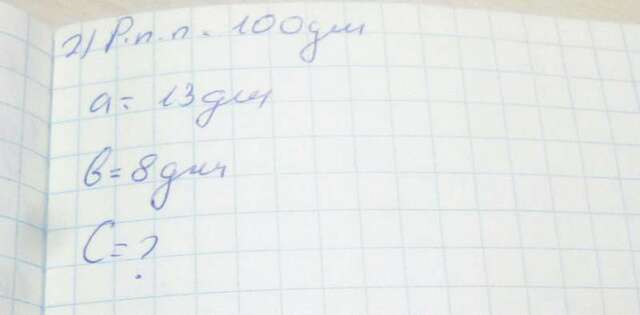 2) Р.п.п. - 100дм
a = 13дм
в = 8дм
C = ?